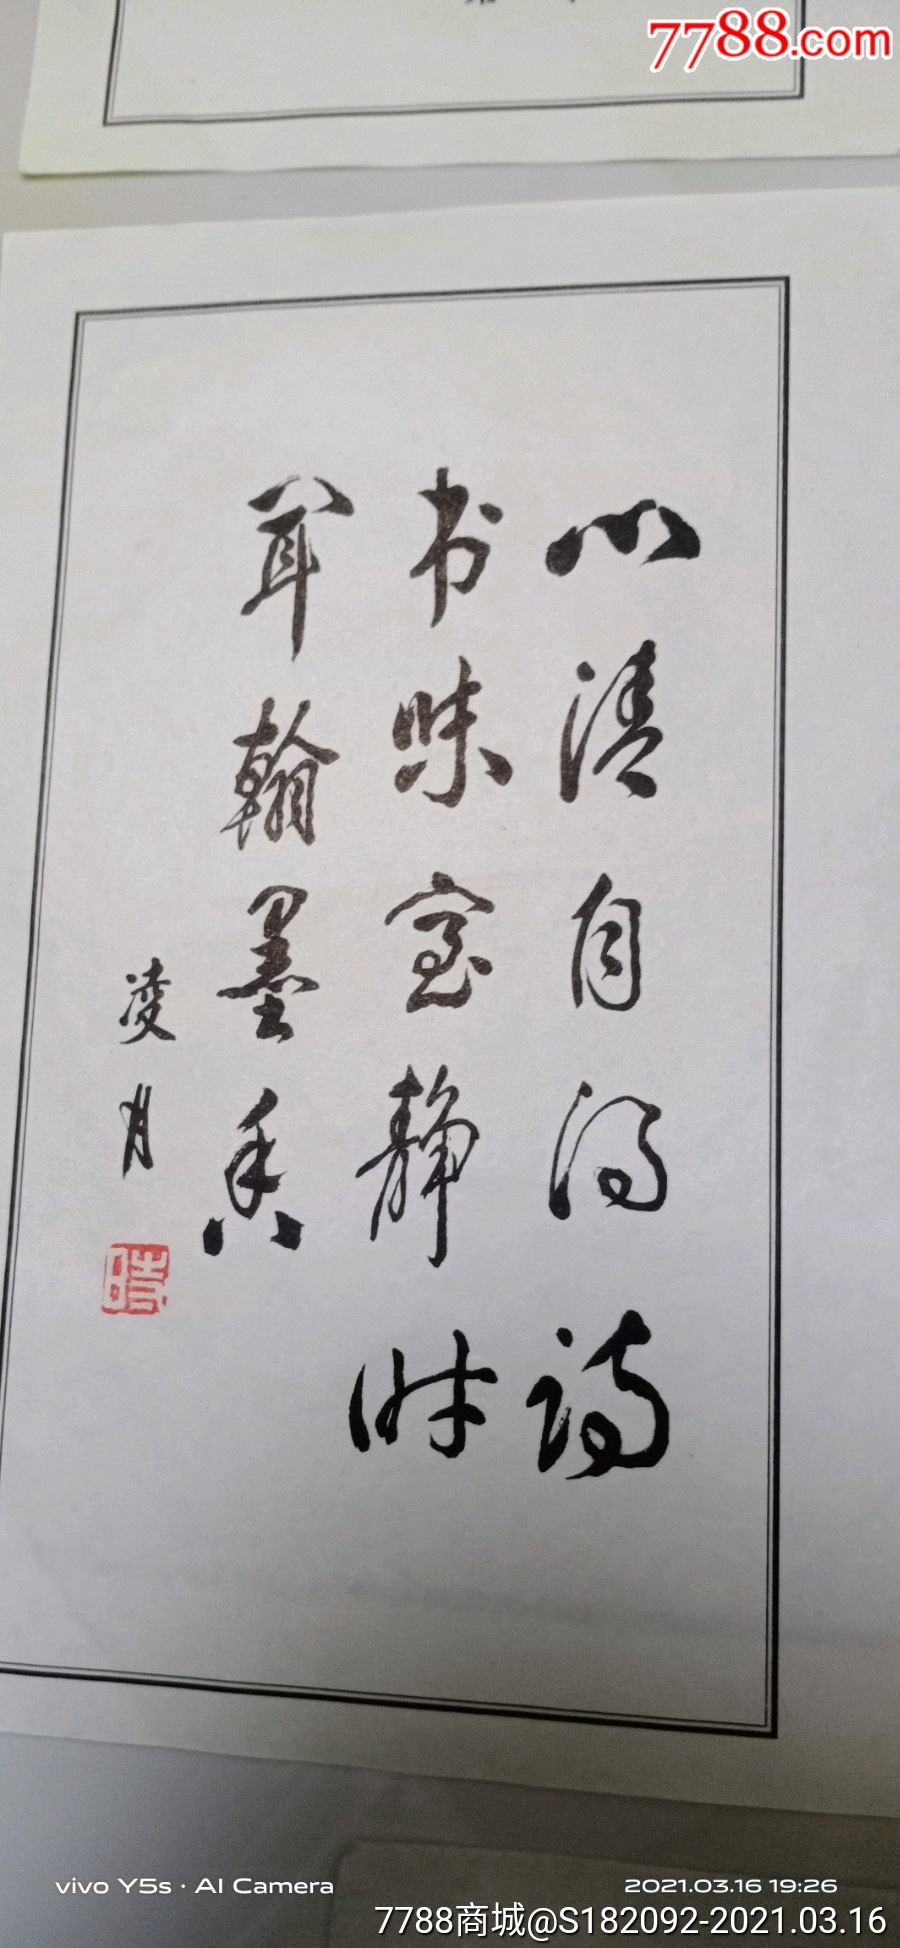 7788.com
心清自得诗
书味室静时
闻翰墨香
凌月
時
vivo Y5s · AI Camera
2021.03.16 19:26
7788商城@S182092-2021.03.16